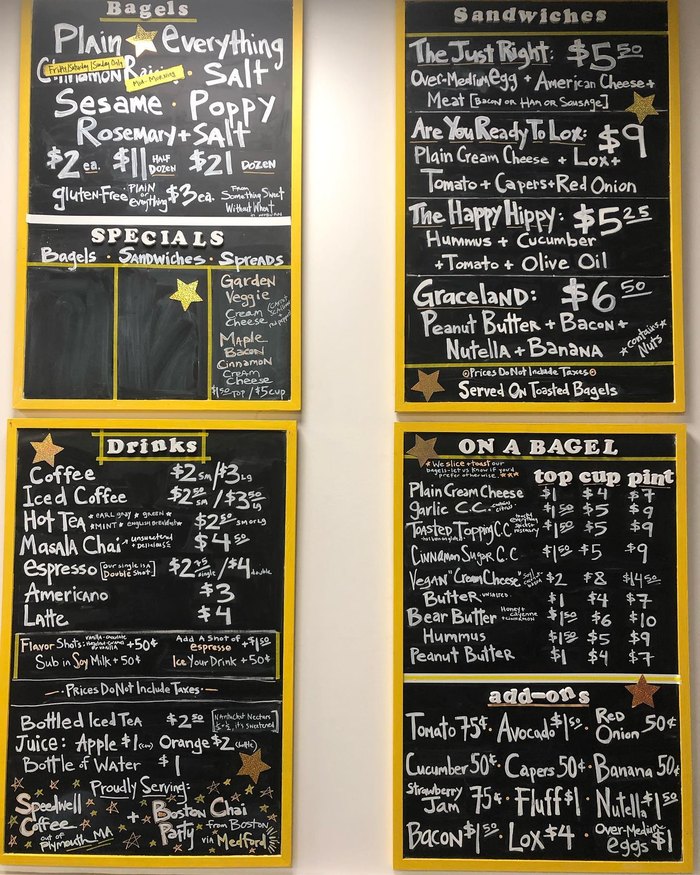 Bagels
Plain Everything
Friday/Saturday/Sunday Only
Cinnamon Rai · Salt
Mid-Morning
Sesame · Poppy
Rosemary + Salt
$2 ea. $11 HALF DOZEN $21 DOZEN
gluten-Free PLAIN or everything $3 ea. From Something Sweet Without Wheat in WOBURN
SPECIALS
Bagels · Sandwiches · Spreads
Garden
Veggie
Cream
Cheese
Maple
Bacon
Cinnamon
Cream
Cheese
$1 50 TOP / $5 CUP
Sandwiches
The Just Right: $5 50
Over-Medium egg + American Cheese +
Meat [Bacon or Ham or Sausage]
Are You Ready To Lox: $9
Plain Cream Cheese + Lox +
Tomato + Capers + Red Onion
The Happy Hippy: $5 25
Hummus + Cucumber
+ Tomato + Olive Oil
Graceland: $6 50
Peanut Butter + Bacon +
Nutella + Banana
*contains Nuts*
Prices Do Not Include Taxes
Served On Toasted Bagels
Drinks
Coffee $2 SM / $3 LG
Iced Coffee $2 50 SM / $3 50 LG
Hot Tea *EARL GRAY *GREEN* *MINT* ENGLISH BREAKFAST* $2 50 SM or LG
Masala Chai unsweetened + delicious $4 50
espresso [our single is a Double Shot] $2 75 single / $4 double
Americano $3
Latte $4
Flavor Shots: + 50¢
Add A Shot of espresso + $1 50
Sub in Soy Milk + 50¢
Ice Your Drink + 50¢
- Prices Do Not Include Taxes -
Bottled Iced Tea $2 50 Nantucket Nectars ½ + ½, it's sweetened
Juice: Apple $1 (can) Orange $2 (bottle)
Bottle of Water $1
Proudly Serving:
Speedwell Coffee out of Plymouth, MA
+ Boston Chai Party from Boston via Medford
ON A BAGEL
* We slice + toast our bagels - let us know if you'd prefer otherwise. ***
top cup pint
Plain Cream Cheese $1 $4 $7
garlic C.C. $1 50 $5 $9
Toasted Topping C.C. $1 50 $5 $9
Cinnamon Sugar C.C. $1 50 $5 $9
Vegan "Cream Cheese" $2 $8 $14 50
Butter - UNSALTED $1 $4 $7
Bear Butter Honey + cayenne + cinnamon $1 50 $6 $10
Hummus $1 50 $5 $9
Peanut Butter $1 $4 $7
add-ons
Tomato 75¢ · Avocado $1 50 · Red Onion 50¢
Cucumber 50¢ · Capers 50¢ · Banana 50¢
Strawberry Jam 75¢ · Fluff $1 · Nutella $1 50
Bacon $1 50 · Lox $4 · Over-Medium eggs $1